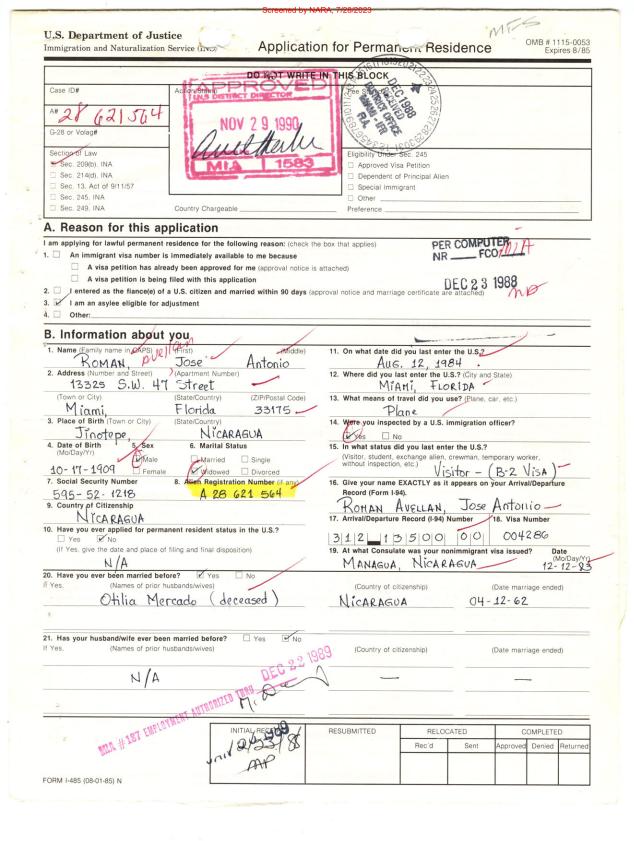 Screened by NARA, 7/20/2023
MFS
U.S. Department of Justice
Immigration and Naturalization Service (INS)
Application for Permanent Residence
OMB # 1115-0053
Expires 8/85
DO NOT WRITE IN THIS BLOCK
Case ID#
Action Stamp
Fee Stamp
A# 28 621 564
G-28 or Volag#
APPROVED
U.S. DISTRICT DIRECTOR
NOV 29 1990
MIA 1583
DEC 1988
RECEIVED
DISTRICT OFFICE
Section of Law
Sec. 209(b), INA
Sec. 214(d), INA
Sec. 13, Act of 9/11/57
Sec. 245, INA
Sec. 249, INA
Country Chargeable
Eligibility Under Sec. 245
Approved Visa Petition
Dependent of Principal Alien
Special Immigrant
Other
Preference
A. Reason for this application
I am applying for lawful permanent residence for the following reason: (check the box that applies)
1. An immigrant visa number is immediately available to me because
A visa petition has already been approved for me (approval notice is attached)
A visa petition is being filed with this application
2. I entered as the fiance(e) of a U.S. citizen and married within 90 days (approval notice and marriage certificate are attached)
3. I am an asylee eligible for adjustment
4. Other:
PER COMPUTER
NR FCO MIA
DEC 23 1988
B. Information about you
1. Name (Family name in CAPS) (First) (Middle)
ROMAN, Jose Antonio
2. Address (Number and Street) (Apartment Number)
13325 S.W. 47 Street
(Town or City) (State/Country) (ZIP/Postal Code)
Miami, Florida 33175
3. Place of Birth (Town or City) (State/Country)
Jinotepe, NICARAGUA
4. Date of Birth (Mo/Day/Yr)
10-17-1909
5. Sex
Male
Female
6. Marital Status
Married Single
Widowed Divorced
7. Social Security Number
595-52-1218
8. Alien Registration Number (if any)
A 28 621 564
9. Country of Citizenship
NICARAGUA
10. Have you ever applied for permanent resident status in the U.S.?
Yes No
(If Yes, give the date and place of filing and final disposition)
N/A
11. On what date did you last enter the U.S.?
AUG. 12, 1984.
12. Where did you last enter the U.S.? (City and State)
MIAMI, FLORIDA
13. What means of travel did you use? (Plane, car, etc.)
Plane
14. Were you inspected by a U.S. immigration officer?
Yes No
15. In what status did you last enter the U.S.?
(Visitor, student, exchange alien, crewman, temporary worker, without inspection, etc.)
Visitor - (B-2 VISA)
16. Give your name EXACTLY as it appears on your Arrival/Departure Record (Form I-94).
ROMAN AVELLAN, JOSE ANTONIO
17. Arrival/Departure Record (I-94) Number
312 13500 00
18. Visa Number
004286
19. At what Consulate was your nonimmigrant visa issued?
MANAGUA, NICARAGUA
Date (Mo/Day/Yr)
12-12-83
20. Have you ever been married before? Yes No
If Yes, (Names of prior husbands/wives) (Country of citizenship) (Date marriage ended)
Otilia Mercado (deceased) NICARAGUA 04-12-62
21. Has your husband/wife ever been married before? Yes No
If Yes, (Names of prior husbands/wives) (Country of citizenship) (Date marriage ended)
N/A — —
MIA #187 EMPLOYMENT AUTHORIZED THRU DEC 22 1989
INITIAL RECEIPT
RESUBMITTED
RELOCATED
Rec'd Sent
COMPLETED
Approved Denied Returned
FORM I-485 (08-01-85) N